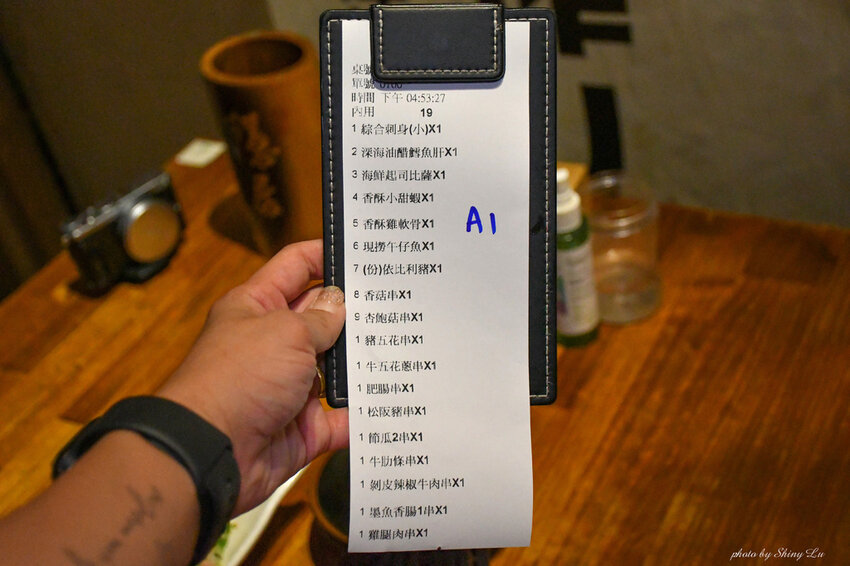 桌號
單號 0700
時間 下午 04:53:27
內用 19
1 綜合刺身(小)X1
2 深海油醋鱈魚肝X1
3 海鮮起司比薩X1
4 香酥小甜蝦X1
5 香酥雞軟骨X1
6 現撈午仔魚X1
7 (份)依比利豬X1
8 香菇串X1
9 杏鮑菇串X1
1 豬五花串X1
1 牛五花蔥串X1
1 肥腸串X1
1 松阪豬串X1
1 節瓜2串X1
1 牛肋條串X1
1 剝皮辣椒牛肉串X1
1 墨魚香腸1串X1
1 雞腿肉串X1
A1
photo by Shiny Lu